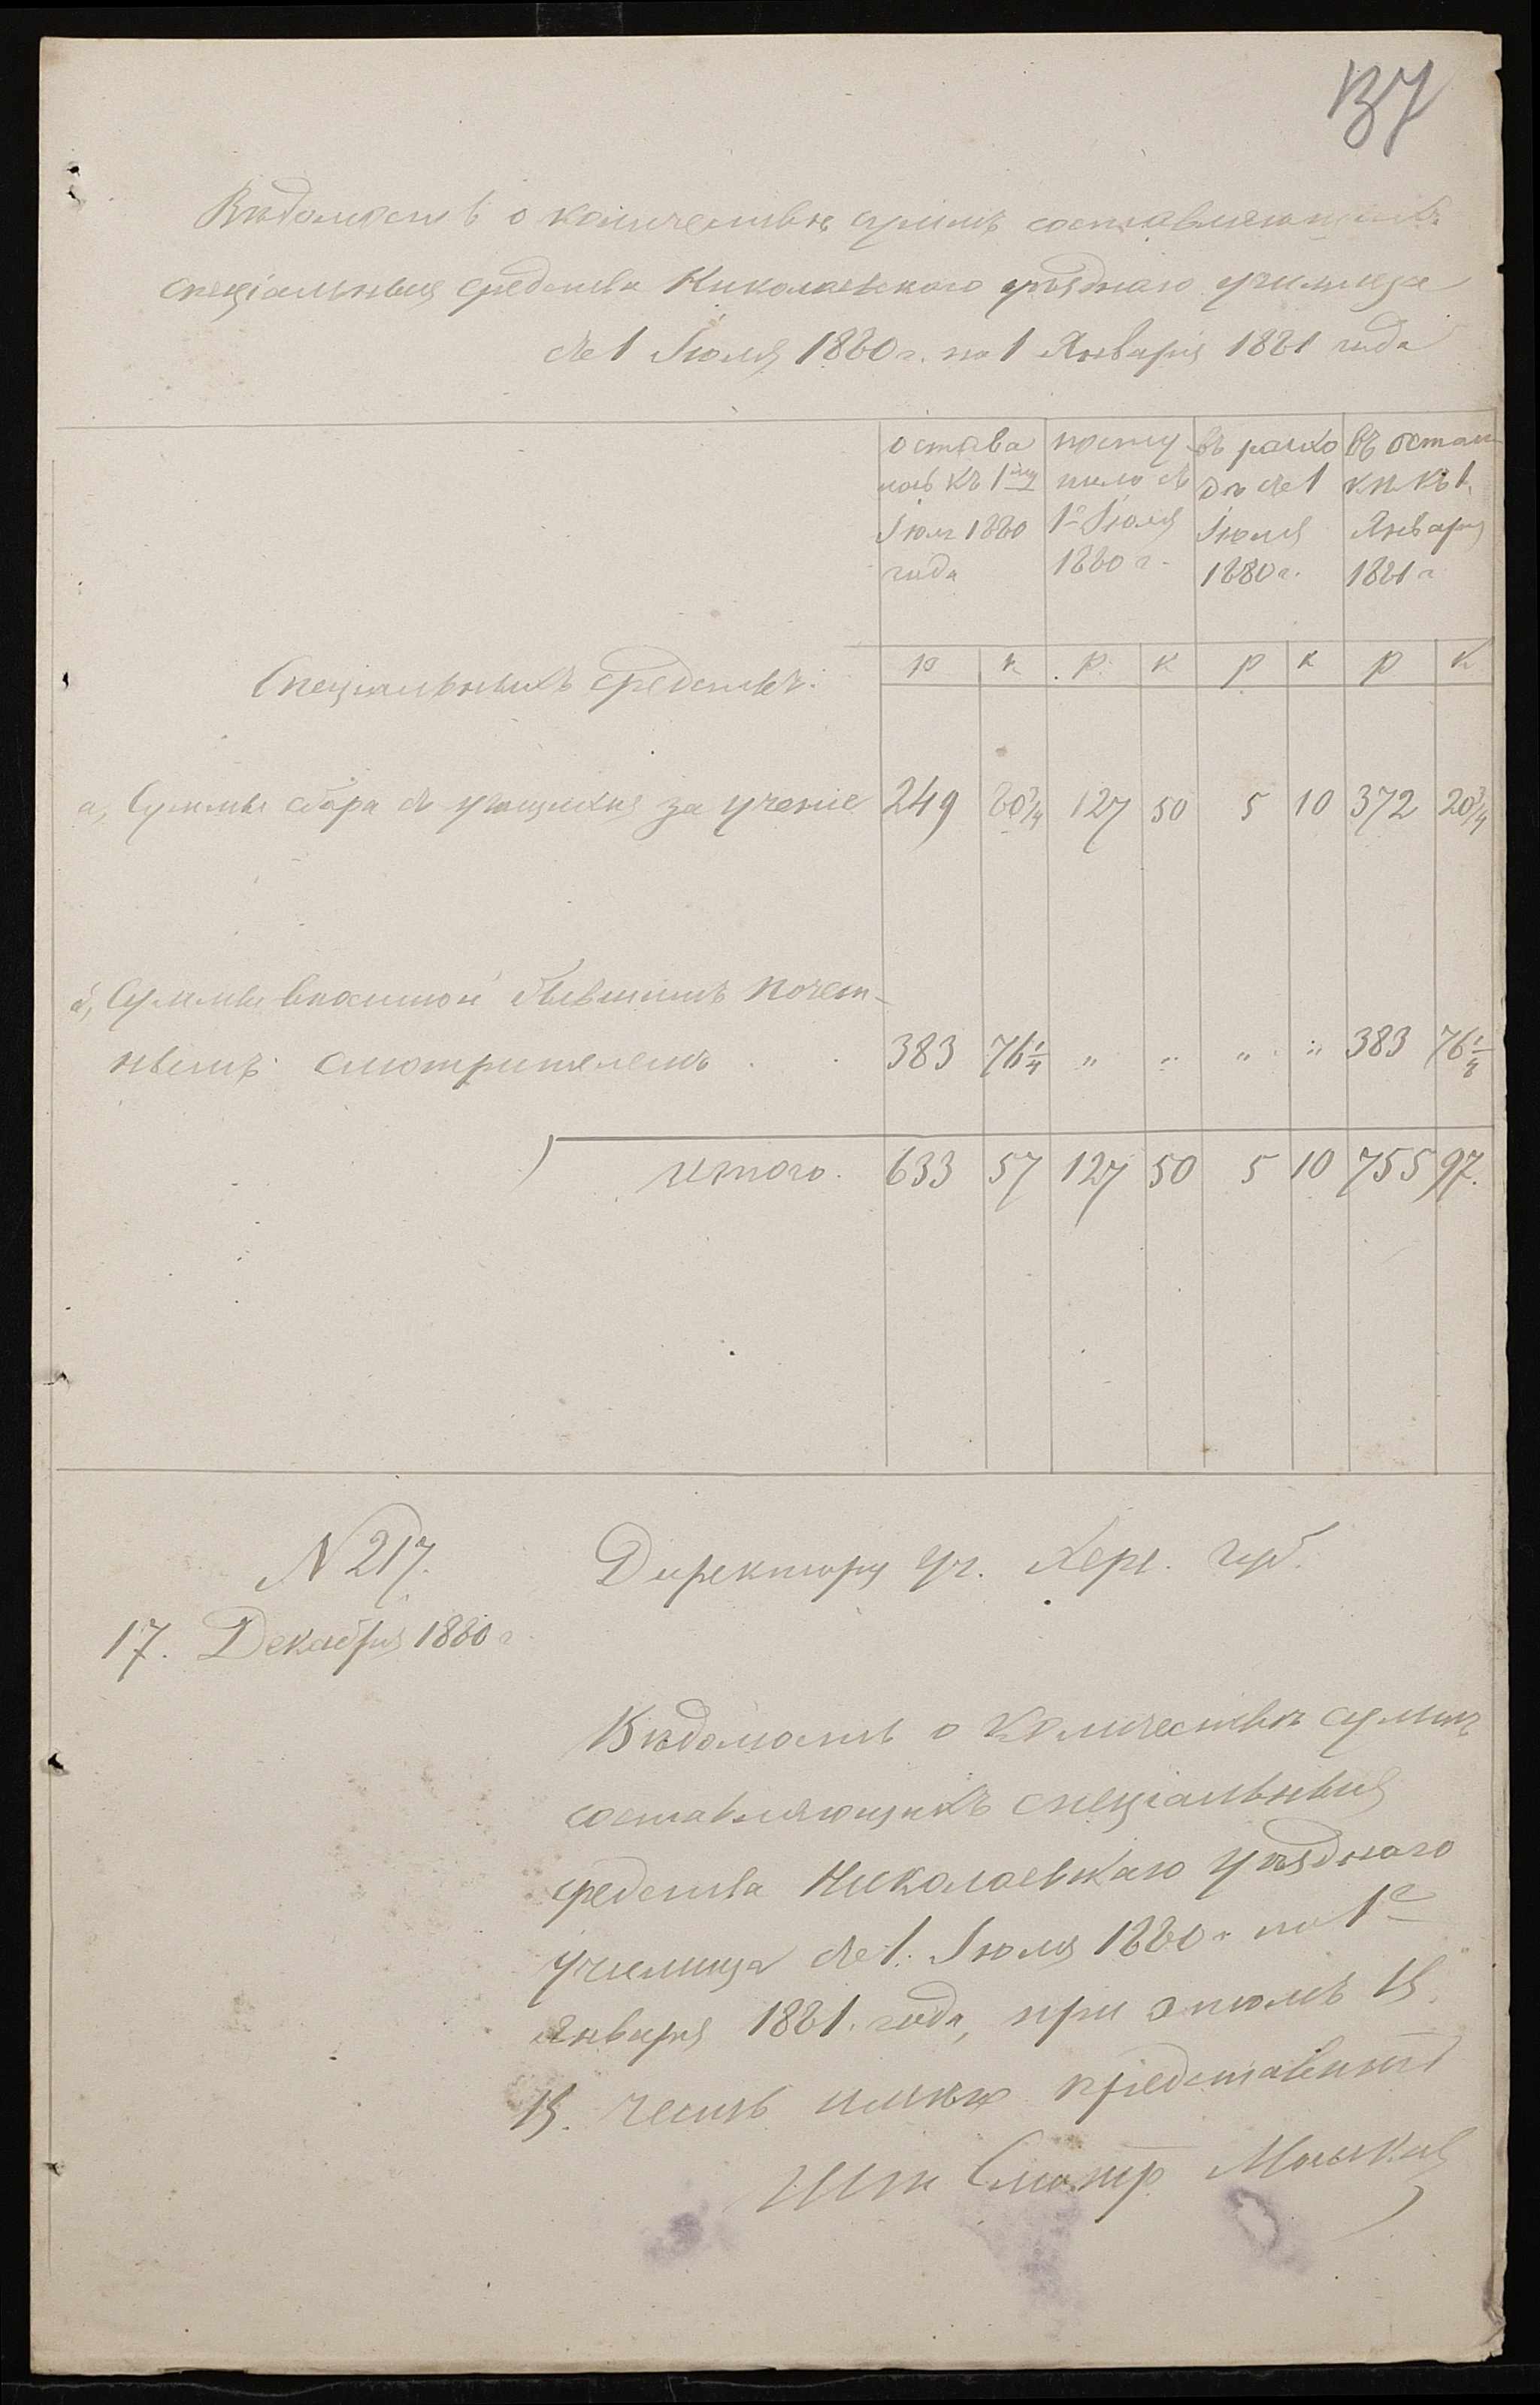 137
Вѣдомость о количествѣ суммъ составляющихъ
спеціальныя средства Николаевскаго уѣзднаго училища
съ 1 Іюля 1880 г. по 1 Января 1881 года
остава лось къ 1му Іюля 1880 года | посту пило съ 1го Іюля 1880 г. | въ расхо дѣ съ 1 Іюля 1880 г. | въ остат кѣ къ 1 Января 1881 г
Спеціальныхъ средствъ: р к р к р к р к
а, Суммы сбора съ учащихся за ученіе 249 80 3/4 127 50 5 10 372 20 3/4
б, Суммы вносимой бывшимъ почет-
нымъ смотрителемъ 383 76 1/4 „ „ „ „ 383 76 1/4
итого. 633 57 127 50 5 10 755 97.
N 217. Директору уч. Херс. губ.
17. Декабря 1880 г.
Вѣдомость о количествѣ суммъ
составляющихъ спеціальныя
средства Николаевскаго уѣзднаго
училища съ 1. Іюля 1880 г по 1е
Января 1881. года, при этомъ В.
В. честь имѣю представить
Шт Смотр.